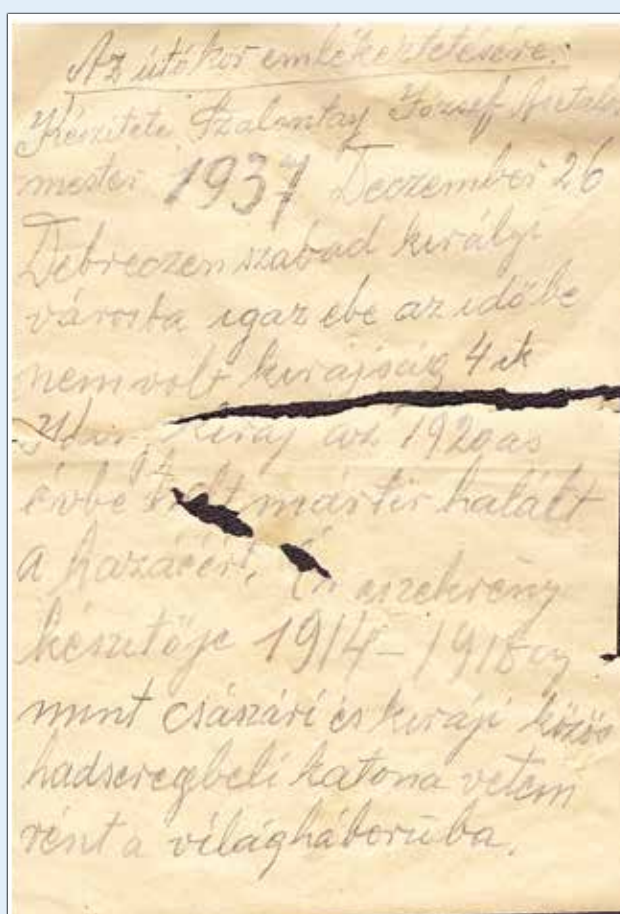 Az útókor emlékeztetésére.
Készitete Szalontay József Asztalos
mester 1937 Deczember 26
Debreczen szabad királyi
városba igaz ebe az időbe
nem volt kirájság 4 ik
kiráj az 1920as
évbe halt mártir halált
a hazáért. Én e szekrény
készitője 1914 – 1918 ig
mint császári és kiráji közös
hadseregbeli katona vetem
részt a világháboruba.